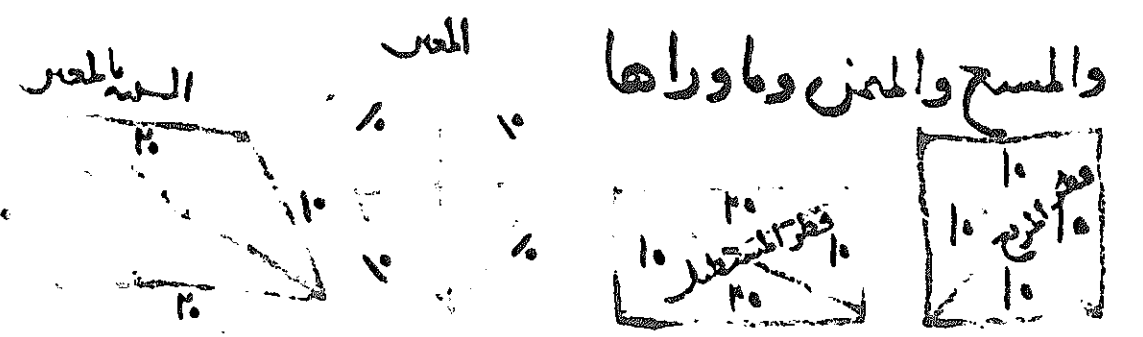 والمسبع والمثمن وماوراها
المعين
الشبيه بالمعين
١٠
قطر المربع
١٠
١٠
١٠
٢٠
قطر المستطيل
١٠
١٠
٢٠
١٠
١٠
١٠
١٠
٢٠
١٠
٢٠